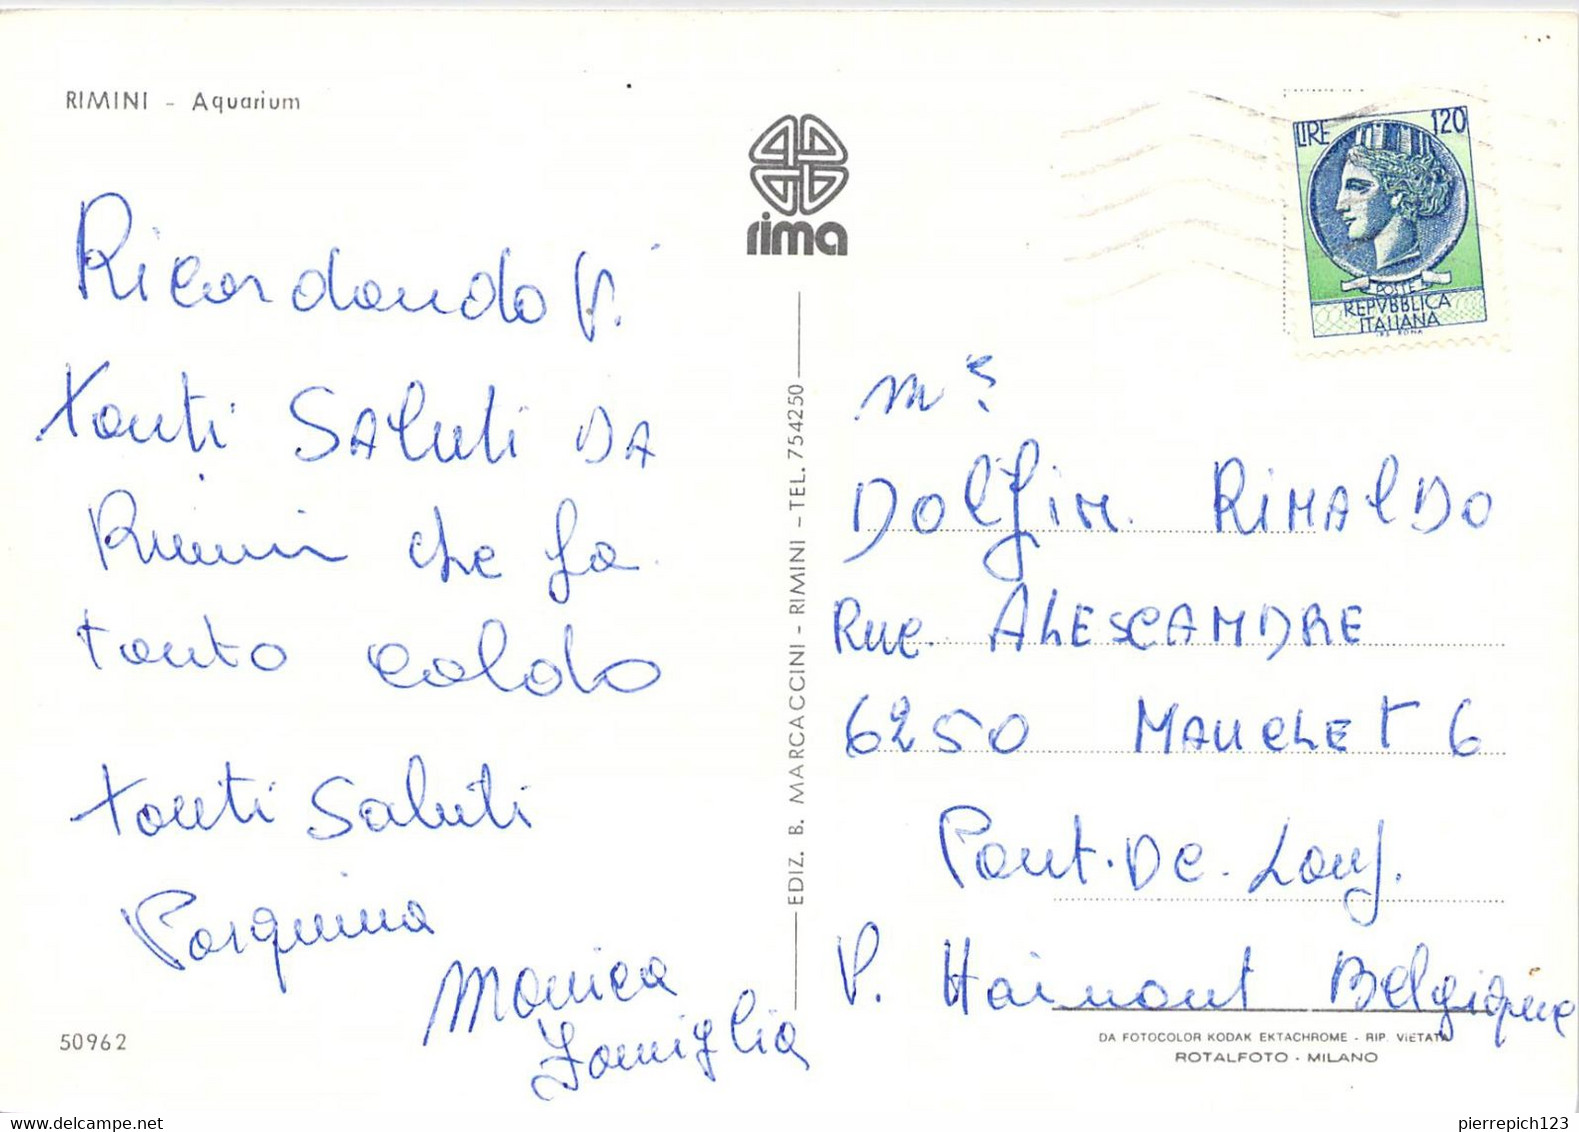 RIMINI - Aquarium
rima
LIRE 120
POSTE
REPVBBLICA
ITALIANA
Ricordando Vi
Tanti SALuti DA
Rimini che fa
tanto caldo
tanti Saluti
Pasquina
Monica
Famiglia
50962
EDIZ. B. MARCACCINI - RIMINI - TEL. 754250
Ms
DOLfiN RiNALDO
Rue ALESCANDRE
6250 MAUCLET 6
Pont. De. Louf.
P. Hainaut Belgique
DA FOTOCOLOR KODAK EKTACHROME - RIP. VIETATA
ROTALFOTO - MILANO
delcampe.net
pierrepich123